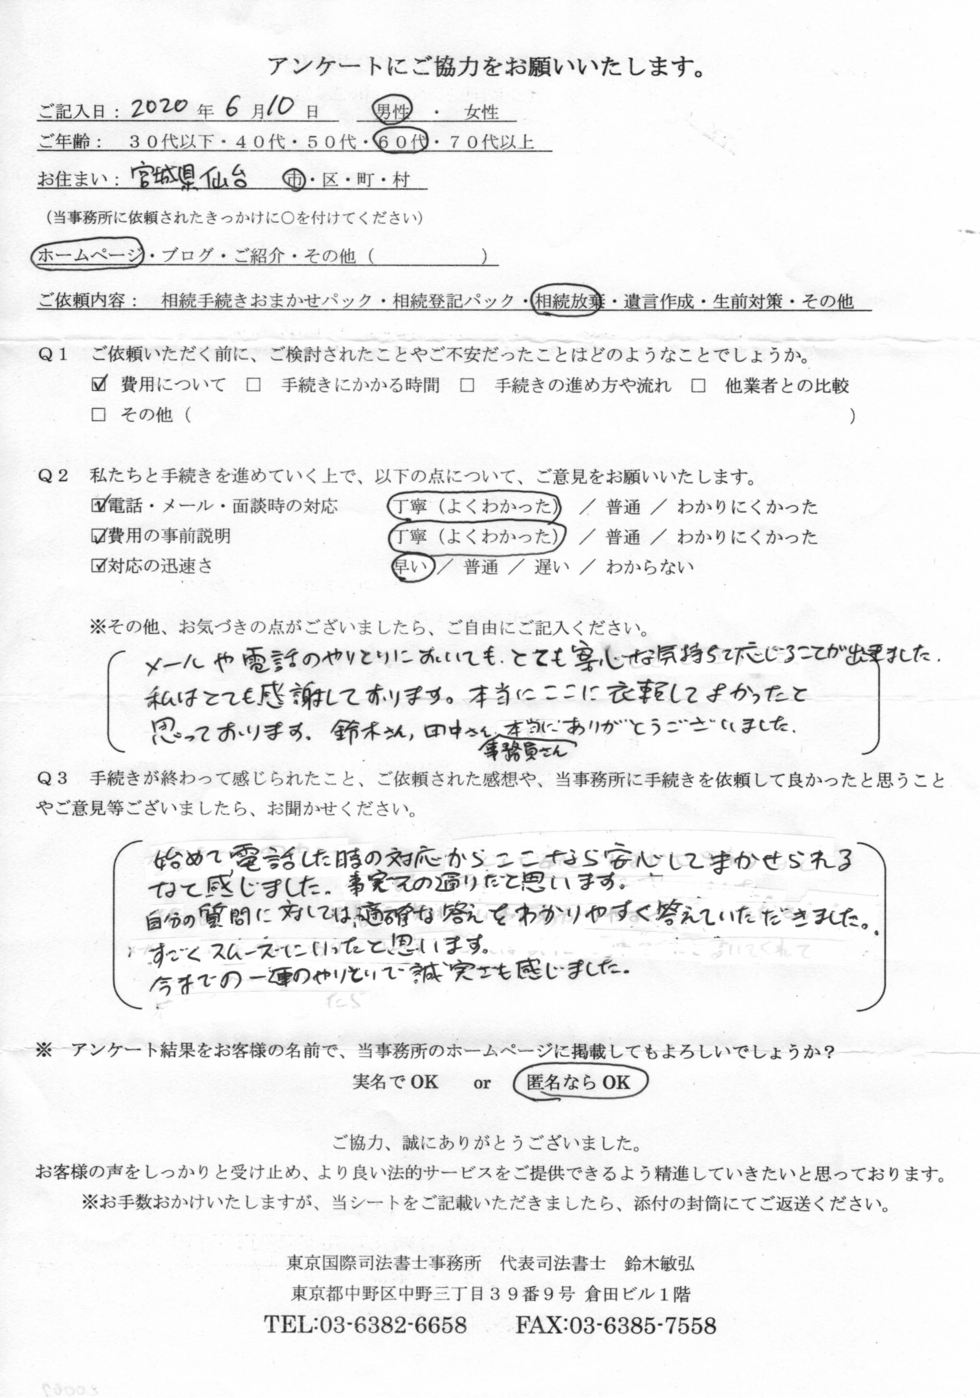 アンケートにご協力をお願いいたします。
ご記入日：2020年 6月10日 男性 ・ 女性
ご年齢： 30代以下・40代・50代・60代・70代以上
お住まい：宮城県仙台 市・区・町・村
（当事務所に依頼されたきっかけに○を付けてください）
ホームページ・ブログ・ご紹介・その他（ ）
ご依頼内容： 相続手続きおまかせパック・相続登記パック・相続放棄・遺言作成・生前対策・その他
Q1 ご依頼いただく前に、ご検討されたことやご不安だったことはどのようなことでしょうか。
☑ 費用について □ 手続きにかかる時間 □ 手続きの進め方や流れ □ 他業者との比較
□ その他（ ）
Q2 私たちと手続きを進めていく上で、以下の点について、ご意見をお願いいたします。
☑電話・メール・面談時の対応 丁寧（よくわかった） ／ 普通 ／ わかりにくかった
☑費用の事前説明 丁寧（よくわかった） ／ 普通 ／ わかりにくかった
☑対応の迅速さ 早い ／ 普通 ／ 遅い ／ わからない
※その他、お気づきの点がございましたら、ご自由にご記入ください。
メールや電話のやりとりにおいても、とても安心な気持ちで応じることが出来ました.
私はとても感謝しております。本当にここに依頼してよかったと
思っております。鈴木さん,田中さん,本当にありがとうございました.
事務員さん
Q3 手続きが終わって感じられたこと、ご依頼された感想や、当事務所に手続きを依頼して良かったと思うこと
やご意見等ございましたら、お聞かせください。
始めて電話した時の対応からここなら安心してまかせられる
なと感じました. 事実その通りだと思います。
自分の質問に対しては,適確な答えをわかりやすく答えていただきました。
すごくスムーズにいったと思います。
今までの一連のやりとりで誠実さも感じました.
※ アンケート結果をお客様の名前で、当事務所のホームページに掲載してもよろしいでしょうか？
実名でOK or 匿名ならOK
ご協力、誠にありがとうございました。
お客様の声をしっかりと受け止め、より良い法的サービスをご提供できるよう精進していきたいと思っております。
※お手数おかけいたしますが、当シートをご記載いただきましたら、添付の封筒にてご返送ください。
東京国際司法書士事務所 代表司法書士 鈴木敏弘
東京都中野区中野三丁目39番9号 倉田ビル1階
TEL:03-6382-6658 FAX:03-6385-7558